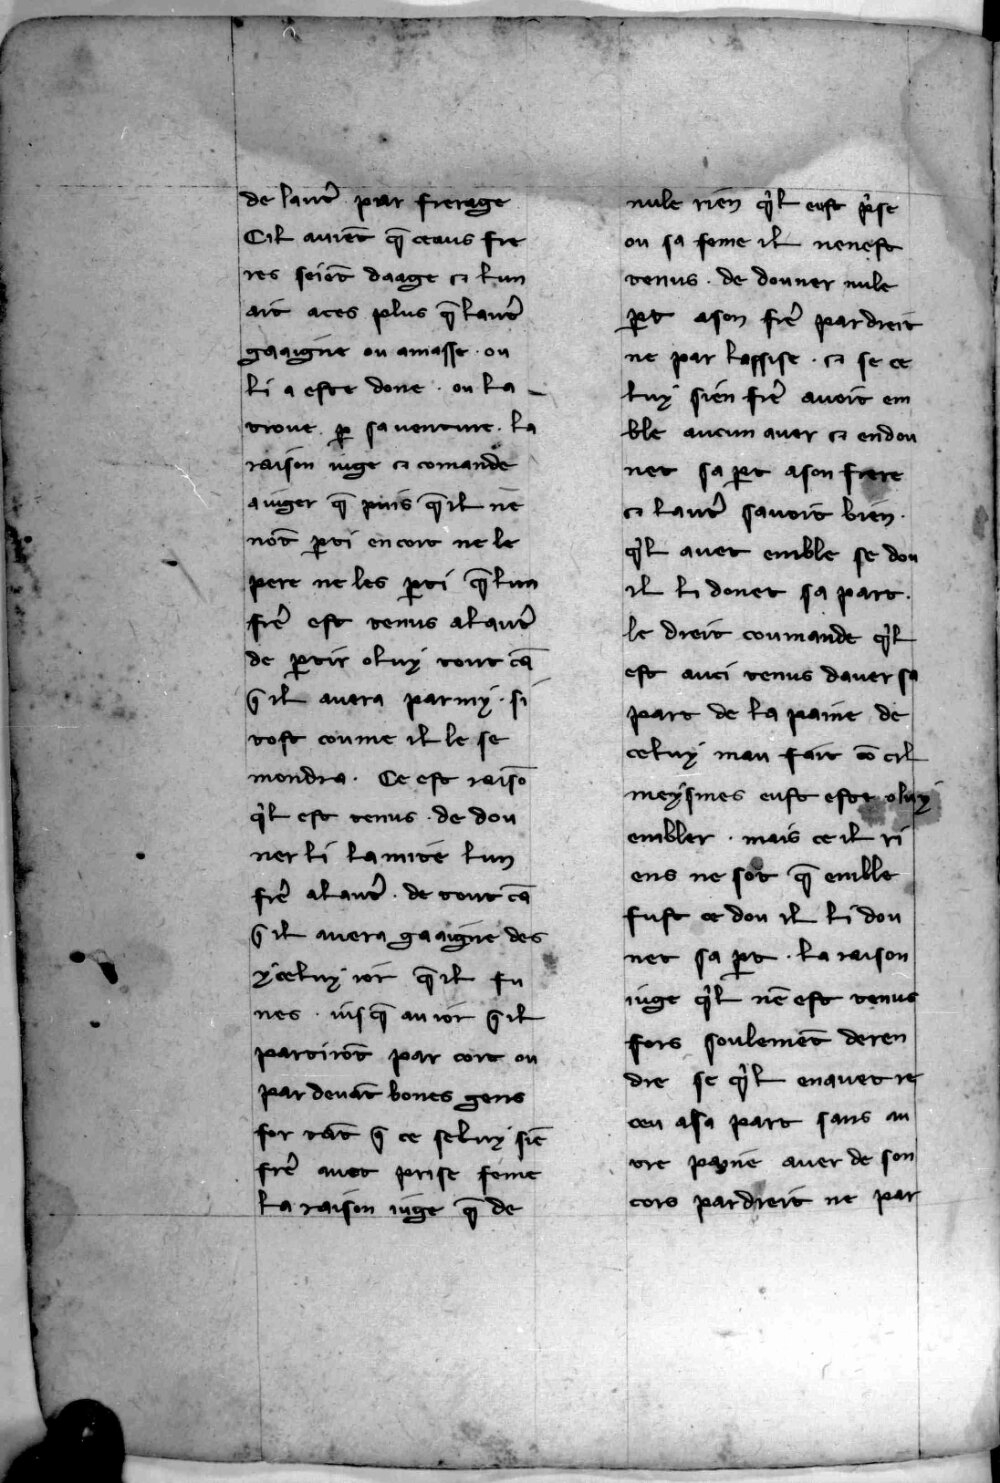 de laut̉ par frerage
Cil auiēt q̄ ceaus fre
res seiōt daage ⁊ lun
ait aces plus q̄ laut̉
gaaigne ou amasse · ou
li a este done · ou la
troue ꝑ sa uenture · la
raison iuge ⁊ comande
a iuger q̄ puis q̄ il ne
nōt ꝑti en cort ne le
pere ne les ꝑti q̄ lun
fr̉e est tenus alaut̉
de ꝑtir o luy tout cā
q̄ il auera parmy · si
tost coume il le se
mondra · Ce est raisō
q̉l est tenus · de dou
ner li la mite lun
fr̉e alaut̉ · de tout cā
q̄ il auera gaaigne des
yceluy ior q̄ il fu
nes · iusq̄ au ior q̄ il
partirōt par cort ou
par deuāt bones gens
for tāt q̄ ce seluy siē
fr̉e auet prise feme
la raison iuge q̄ de
nule rien q̉l eust p̉se
ou sa feme il nenest
tenus · de donner nule
ꝑt ason fr̉e par dreit
ne par lassise · ⁊ se ce
luy sien fr̉e auoit em
ble aucun auer ⁊ en dou
net sa ꝑt a son frere
⁊ laut̉ sauoit bien ·
q̉l auet emble se dou
il li donet sa part ·
le dreit coumande q̉l
est auci tenus dauer sa
part de la paine de
celuy mau fait cō cil
meysmes eust este o luy
embler · mais ce il ri
ens ne sot q̄ emble
fust ce dou il li dou
net sa ꝑt · la raison
iuge q̉l nē est tenus
fors soulemēt de ren
dre se q̉l en auet re
ceu a sa part sans au
tre payne auer de son
cors par dreit ne par